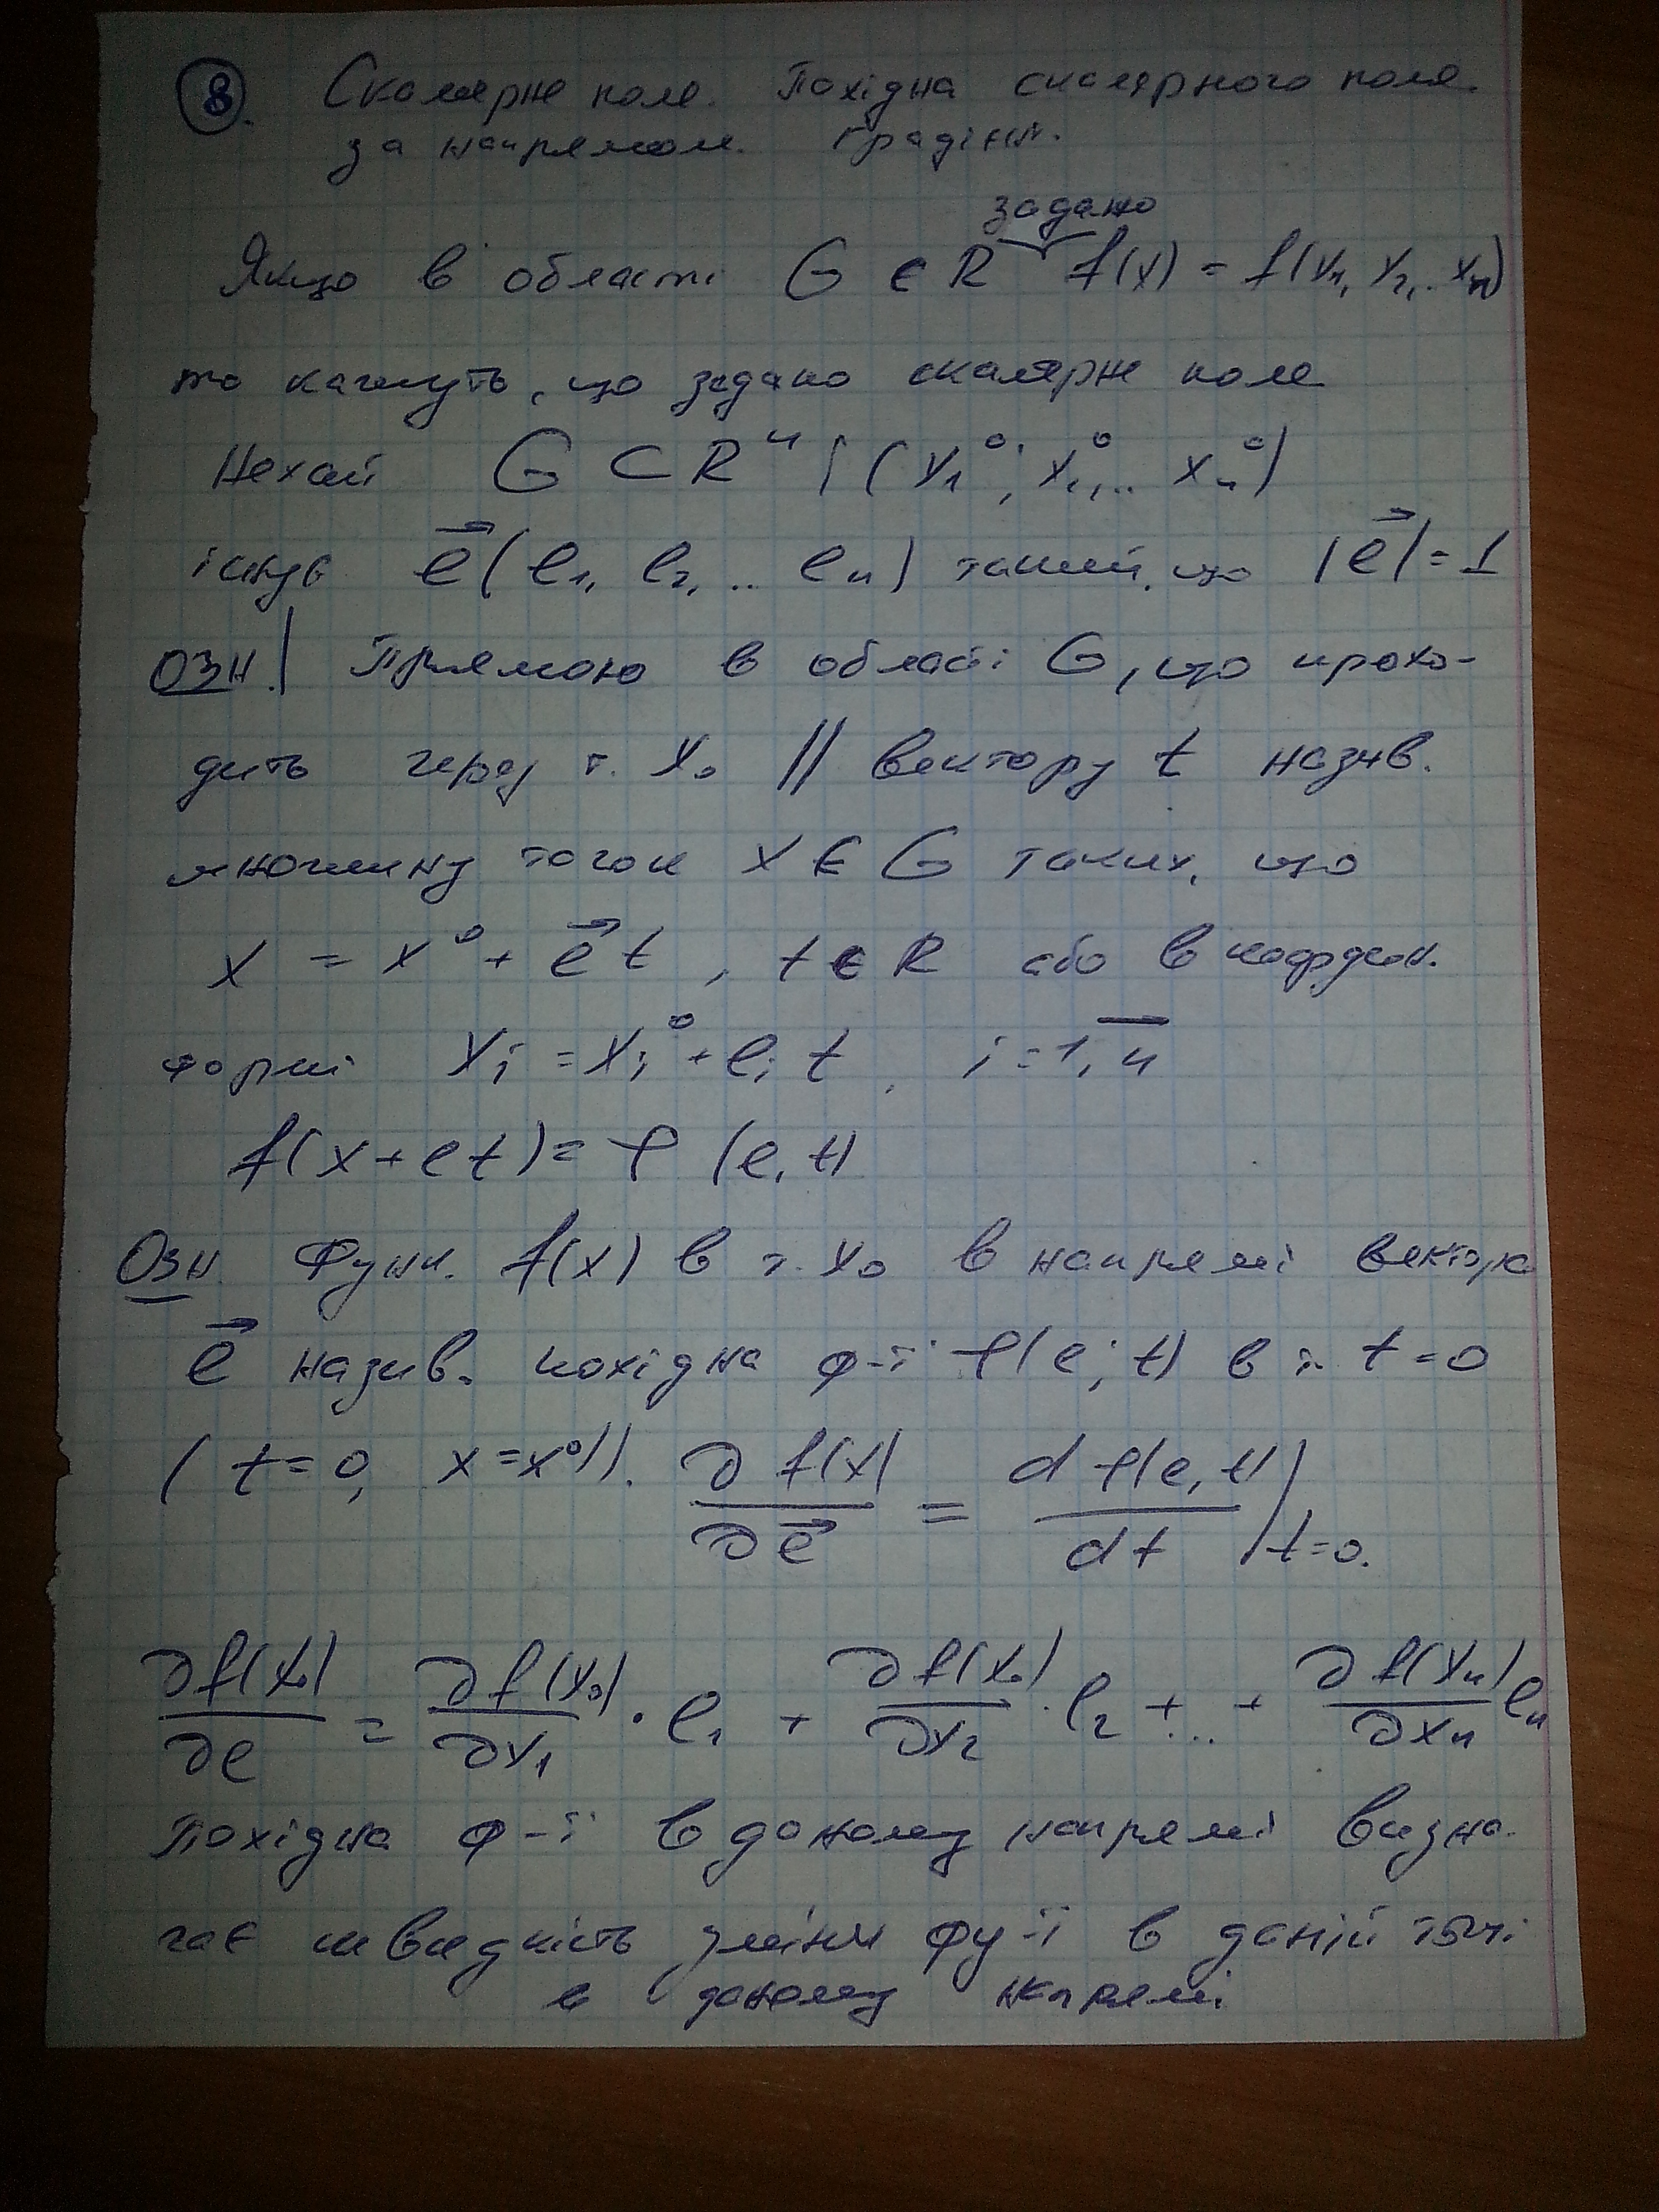 8. Скалярне поле. Похідна скалярного поля
за напрямом. Градієнт.
задано
Якщо в області G ∈ R f(x) = f(x₁, x₂, .. xₙ)
то кажуть, що задано скалярне поле
Нехай G ⊂ Rⁿ і (x₁⁰; x₂,.. xₙ⁰)
існує e⃗(e₁, e₂, .. eₙ) такий, що |e⃗| = 1
Озн. | Прямою в області G, що прохо-
дить через т. x₀ || вектору t назив.
множину точок x ∈ G таких, що
x = x⁰ + e⃗t, t ∈ R або в коорден.
формі xᵢ = xᵢ⁰ + eᵢt, i = 1,n̅
f(x+et) = φ(e, t)
Озн. Функ. f(x) в т. x₀ в напрямі вектора
e⃗ назив. похідна ф-ії φ(e; t) в т. t = 0
(t=0, x=x⁰)). ∂f(x)/∂e⃗ = dφ(e, t)/dt |t=0.
∂f(x₀)/∂e = ∂f(x₀)/∂x₁ · e₁ + ∂f(x₀)/∂x₂ · e₂ + .. + ∂f(xₙ)/∂xₙ eₙ
Похідна ф-ії в даному напрямі визна-
чає швидкість зміни фу-ії в даній точі
в даному напрямі